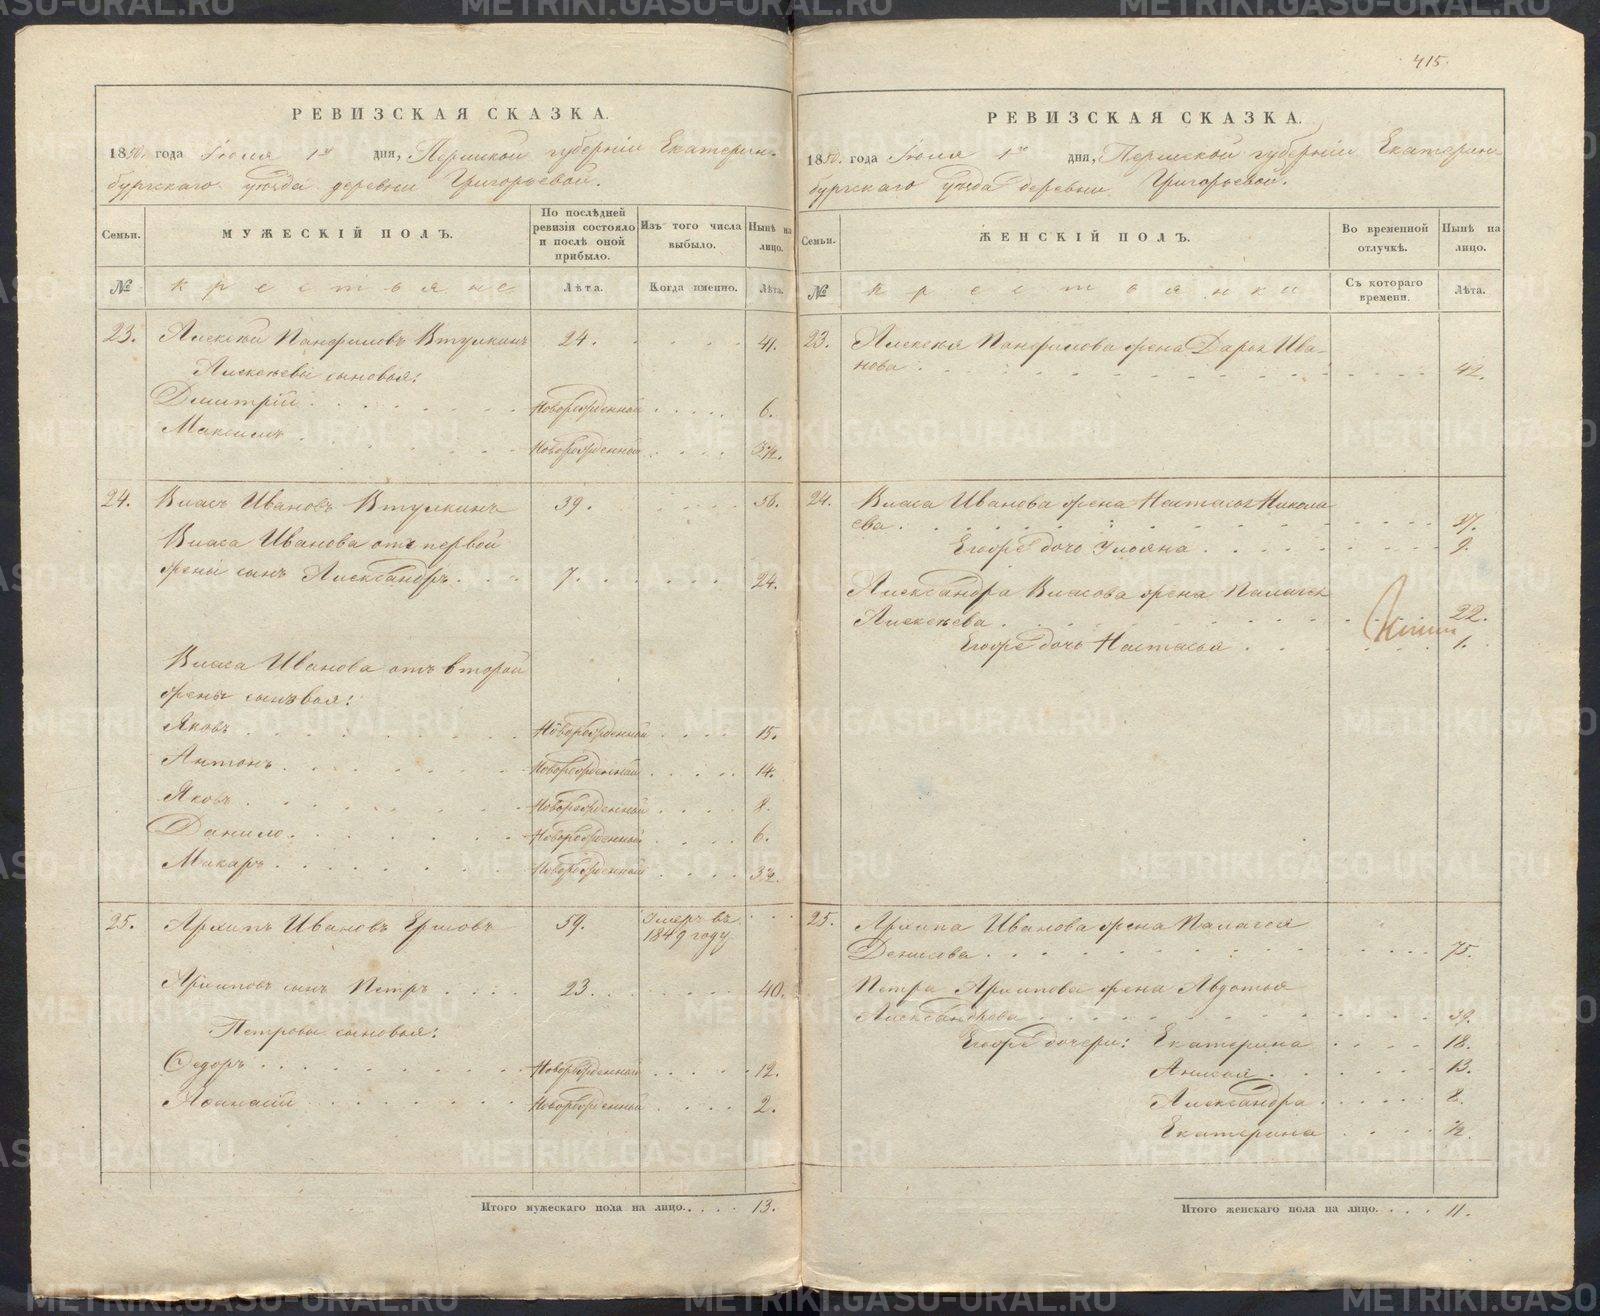 415.
РЕВИЗСКАЯ СКАЗКА.
1850. года Июля 1го дня, Пермской губерніи Екатерин-
бургскаго уѣзда деревни Григорьевой.
Семьи.
МУЖЕСКІЙ ПОЛЪ.
По послѣдней ревизіи состояло и послѣ оной прибыло.
Изъ того числа выбыло.
Нынѣ на лицо.
№
крестьяне
Лѣта.
Когда именно.
Лѣта.
23. Алексѣй Панфиловъ Втулкинъ 24. 41.
Алексѣевы сыновья:
Дмитрій Новорожденный 6.
Максимъ Новорожденный
24. Власъ Ивановъ Втулкинъ 39. 56.
Власа Иванова отъ первой
жены сынъ Александръ 7. 24.
Власа Иванова отъ второй
жены сыновья:
Яковъ Новорожденный 15.
Антонъ Новорожденный 14.
Яковъ Новорожденный 8.
Данило Новорожденный 6.
Макаръ Новорожденный
25. Архипъ Ивановъ Ершовъ 59. Умеръ въ
1849 году
Архиповъ сынъ Петръ 23. 40.
Петровы сыновья:
Федоръ Новорожденный 12.
Афанасій Новорожденный 2.
Итого мужескаго пола на лицо..... 13.
РЕВИЗСКАЯ СКАЗКА.
1850. года Июля 1го дня, Пермской губерніи Екатерин
бургскаго уѣзда деревни Григорьевой.
Семьи.
ЖЕНСКІЙ ПОЛЪ.
Во временной отлучкѣ.
Нынѣ на лицо.
№
крестьянки
Съ котораго времени.
Лѣта.
23. Алексея Панфилова жена Дарья Ива-
нова 42.
24. Власа Иванова жена Настасья Никола
ева 37.
Егожъ дочь Ульяна 9.
Александра Власова жена Палагея
Алексѣева 22.
Егожъ дочь Настасья 1.
25. Архипа Иванова жена Палагея
Денисова 75.
Петра Архипова жена Авдотья
Александрова 39.
Егожъ дочери: Екатерина 18.
Анисья 13.
Александра 8.
Екатерина ½.
Итого женскаго пола на лицо..... 11.
METRIKI.GASO-URAL.RU